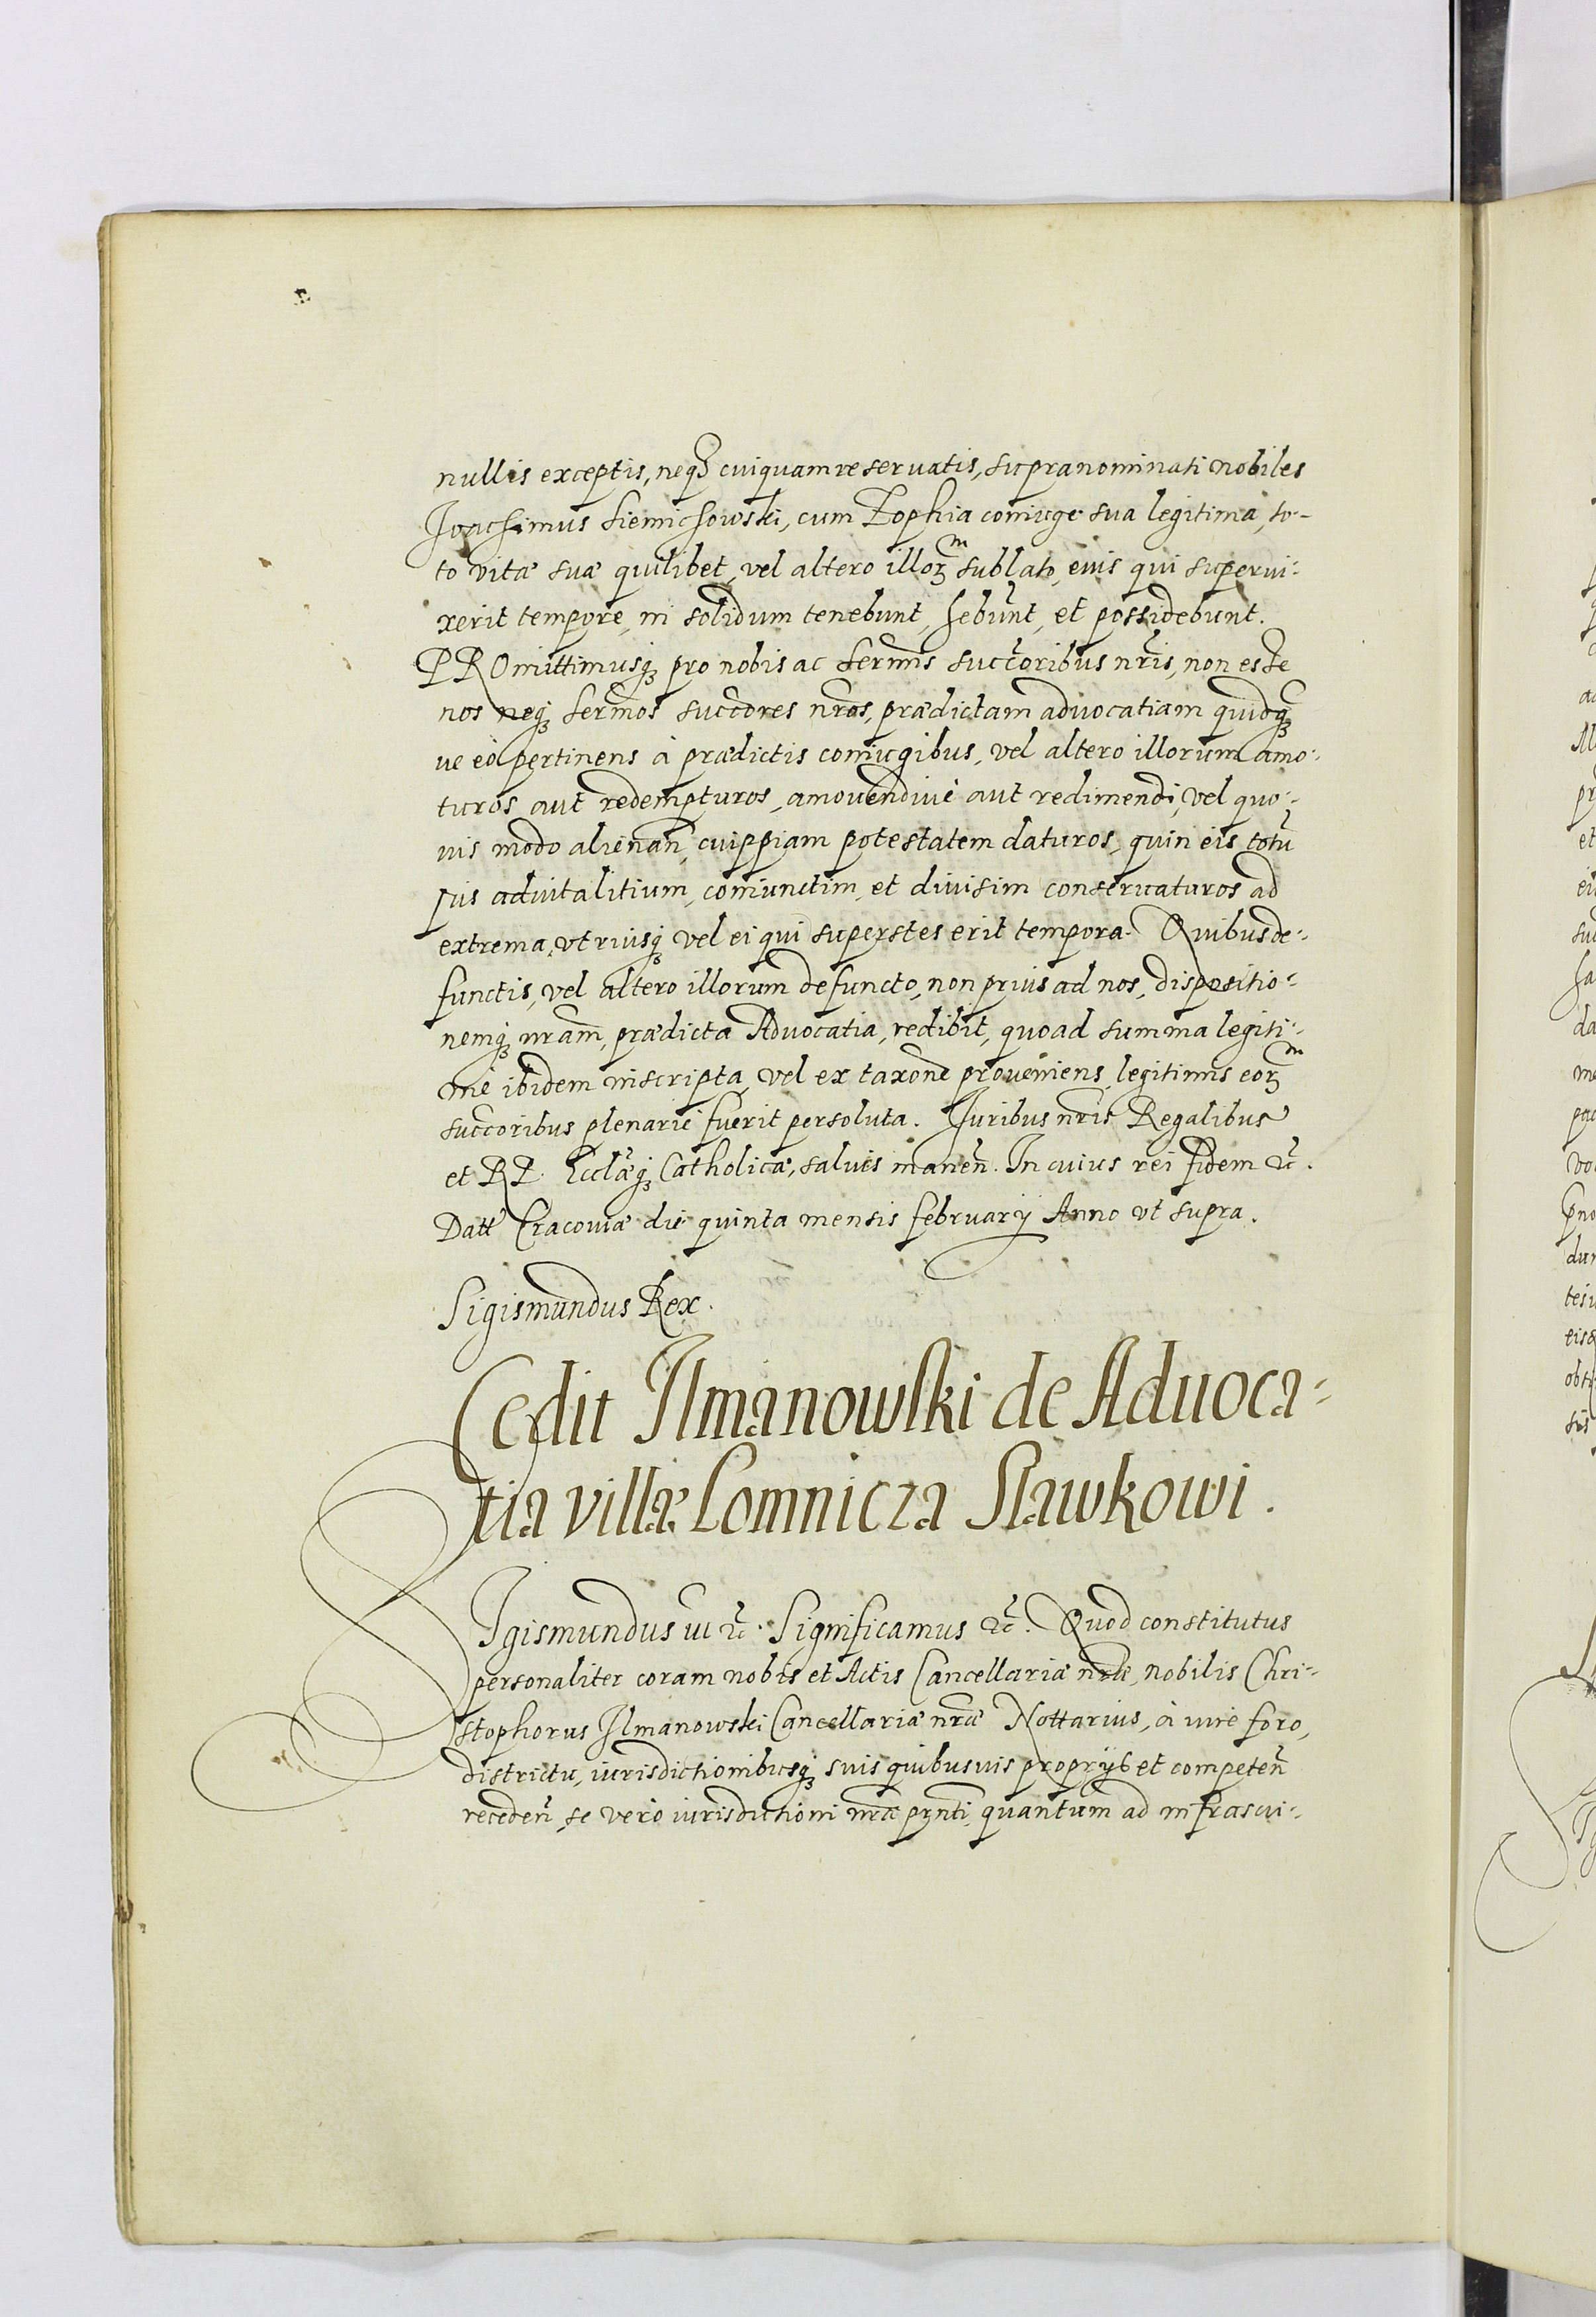 nullis exceptis, neqꝫ cuiquam reseruatis, supranominati nobiles
Joachimus Siemichowski, cum Zophia coniuge sua legitima, to-
to vitæ suæ quilibet, vel altero illoꝝm sublato, eius qui superui-
xerit tempore, in solidum tenebunt, hẽbunt, et possidebunt.
PROmittimusqꝫ pro nobis ac Sermis succ̃oribus nr̃is, non esse
nos neqꝫ Serm̃os succ̃ores nr̃os, prædictam aduocatiam quidqꝫ
ue eò pertinens à prædictis coniugibus, vel altero illorum amo-
turos aut redempturos, amouendiuè aut redimendi, vel quo-
uis modo alienañ, cuippiam potestatem daturos, quin eis totũ
jus aduitalitium, coniunctim, et diuisim conseruaturos ad
extrema, vtriusqꝫ vel ei qui superstes erit tempora. Quibus de-
functis, vel altero illorum defuncto, non prius ad nos, dispositio-
nemqꝫ nr̃am, prædicta Aduocatia, redibit, quoad summa legiti-
mè ibidem inscripta, vel ex taxõne proueniens, legitimis eoꝝm
succ̃oribus plenariè fuerit persoluta. Juribus nr̃is Regalibus
et RP. Eccl̃æqꝫ Catholicæ, saluis maneñ. In cuius rei fidem ꝛc̃.
Datt Cracouiæ die quinta mensis february Anno vt supra.
Sigismundus Rex.
Cedit Ilmanowski de Aduoca-
tia villæ Lomnicza Slawkowi.
SIgismundus III ꝛc̃. Significamus ꝛc̃. Quod constitutus
personaliter coram nobis et Actis Cancellariæ nr̃æ, nobilis Chri-
stophorus Ilmanowski Cancellariæ nr̃æ Nottarius, à iure foro,
districtu, iurisdictionibusqꝫ suis quibusuis proprijs et competeñ
recedeñ, se verò iurisdictioni nr̃æ pr̃nti, quantum ad infrascri-